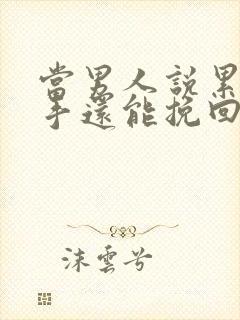 當男人說累
手還能挽回
沫雲兮